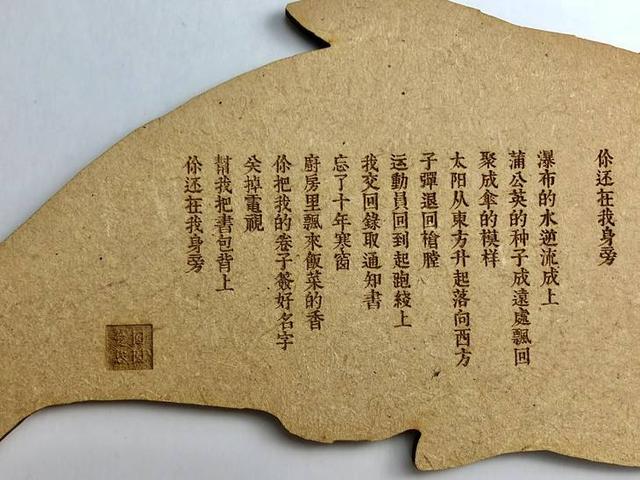 你还在我身旁
瀑布的水逆流成上
蒲公英的种子成遠處飄回
聚成傘的模样
太阳从東方升起落向西方
子彈退回槍膛
运動員回到起跑綫上
我交回錄取通知書
忘了十年寒窗
廚房里飄來飯菜的香
你把我的卷子簽好名字
关掉電視
幫我把書包背上
你还在我身旁